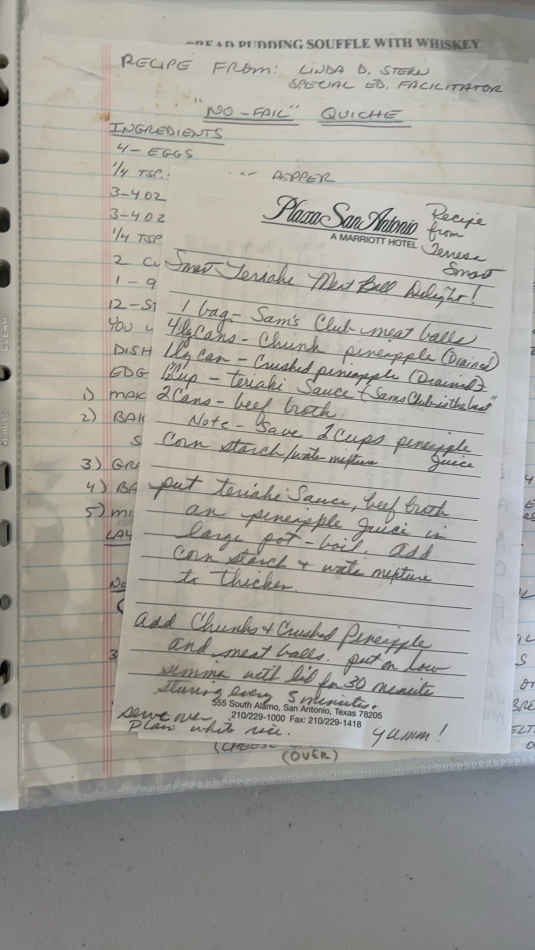 BREAD PUDDING SOUFFLE WITH WHISKEY
RECIPE FROM: LINDA D. STERN
SPECIAL ED. FACILITATOR
"NO-FAIL" QUICHE
INGREDIENTS
4 - EGGS
1/4 TSP.
PEPPER
3-4 OZ
3-4 OZ
1/4 TSP
2 CU
1 - 9
12-ST
YOU
DISH
EDG
1) MAK
2) BAK
S
3) GR
4) BA
5) MI
LAY
3
(OVER)
Plaza San Antonio
A MARRIOTT HOTEL
Recipe
from
Terese
Smost
Smost Teriake Meat Ball Delight!
1 bag - Sam's Club meat balls
4 lg cans - Chunk pineapple (Drained)
1 lg can - Crushed pineapple (Drained)
- teriake Sauce (Sam's Club is the best)
2 Cans - beef broth
Note - Save 2 Cups pineapple
juice
Corn starch/water mixture
put teriake Sauce, beef broth
an pineapple juice in
large pot - boil. add
Corn starch & water mixture
to thicken.
add Chunks & Crushed Pineapple
and meat balls. put on low
simmer with lid for 30 minutes
stirring every 5 minutes.
555 South Alamo, San Antonio, Texas 78205
210/229-1000 Fax: 210/229-1418
serve over
Plain white rice.
yumm!